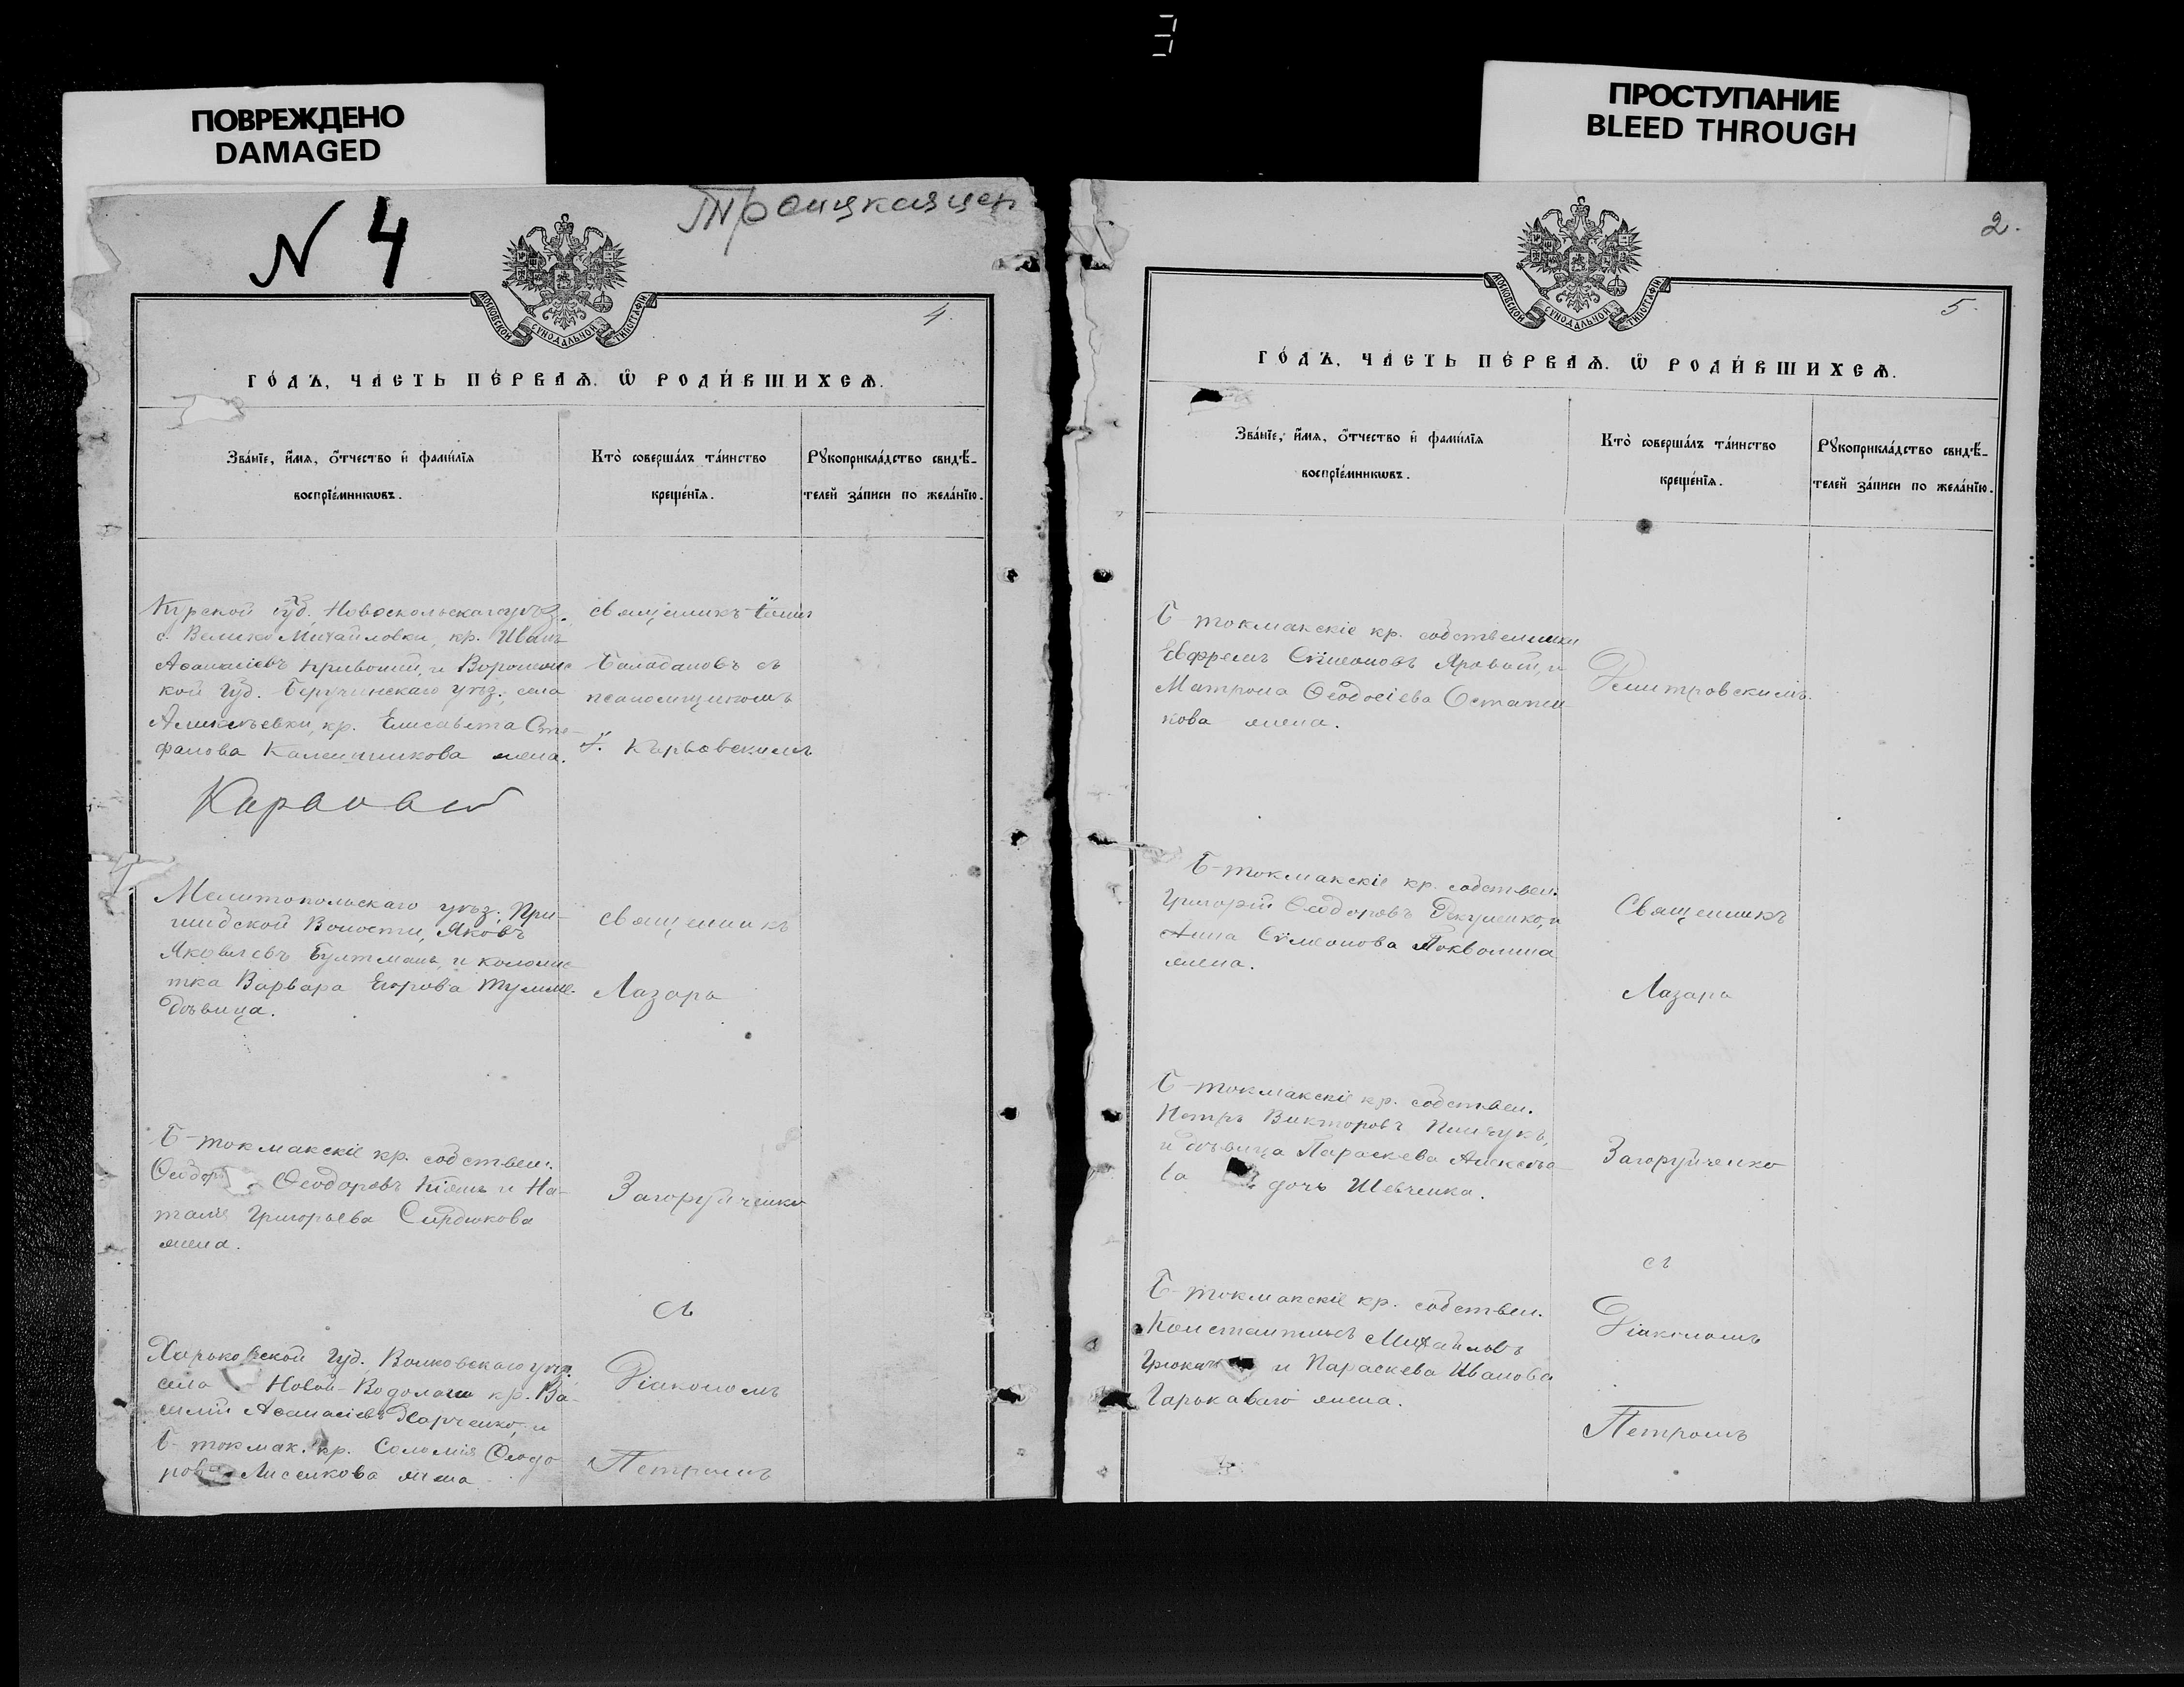 ПОВРЕЖДЕНО
DAMAGED
N 4
Троицкая цер
МОСКОВСКОЙ СѴНОДАЛЬНОЙ ТИПОГРАФІИ
4.
ГО́ДЪ, ЧАСТЬ ПЕ́РВАЯ. Ѽ РОДИ́ВШИХСѦ.
Зва́нїе, и҆́мѧ, ѻ҆́тчество и҆ фами́лїѧ
воспрїе́мникѡвъ.
Кто̀ соверша́лъ та́инство
креще́нїѧ.
Рꙋкоприкла́дство свидѣ́-
телей за́писи по жела́нїю.
Курской губ. Новоскольскаго уѣз.
с. Велико Михайловки, кр. Иванъ
Аѳанасіевъ Кривошій, и Воронежс
кой губ. Бирученскаго уѣз., села
Алексѣевки, кр. Елисавета Сте-
фанова Калашникова жена.
священникъ
Балабановъ съ
псаломщикомъ
Мелитопольскаго уѣз. При-
шибской Волости, Яковъ
Яковлевъ Бултманъ, и колонис
тка Варвара Егорова
дѣвица.
священникъ
Лазарь
Б-токмакскіе кр. собствен.
Ѳеодоръ Ѳеодоровъ Кіяшъ и На-
талія Григорьева Сердюкова
жена.
Загоруйченко
съ
Харьковской губ. Волковскаго уѣз.
села Новой-Водолаги кр. Ва-
силій Аѳанасіевъ Харченко, и
Б-токмак. кр. Соломія Ѳеодо
рова Лисенкова жена
Діакономъ
Петромъ
ПРОСТУПАНИЕ
BLEED THROUGH
2.
МОСКОВСКОЙ СѴНОДАЛЬНОЙ ТИПОГРАФІИ
5.
ГО́ДЪ, ЧАСТЬ ПЕ́РВАЯ. Ѽ РОДИ́ВШИХСѦ.
Зва́нїе, и҆́мѧ, ѻ҆́тчество и҆ фами́лїѧ
воспрїе́мникѡвъ.
Кто̀ соверша́лъ та́инство
креще́нїѧ.
Рꙋкоприкла́дство свидѣ́-
телей за́писи по жела́нїю.
Б-токмакскіе кр. собственники
Евфремъ Сѵмеоновъ Яровой, и
Матрона Ѳеодосіева Остапен
кова жена.
Дмитровскимъ.
Б-токмакскіе кр. собствен.
Григорій Ѳеодоровъ и
Анна Сѵмеонова
жена.
Священникъ
Лазарь
Б-токмакскіе кр. собствен.
Петръ Викторовъ
и дѣвица Параскева Алексѣе
ва дочь Шевченка.
Загоруйченко
съ
Б-токмакскіе кр. собствен.
Константинъ Михайловъ
и Параскева Иванова
Гарькаваго жена.
Діакономъ
Петромъ